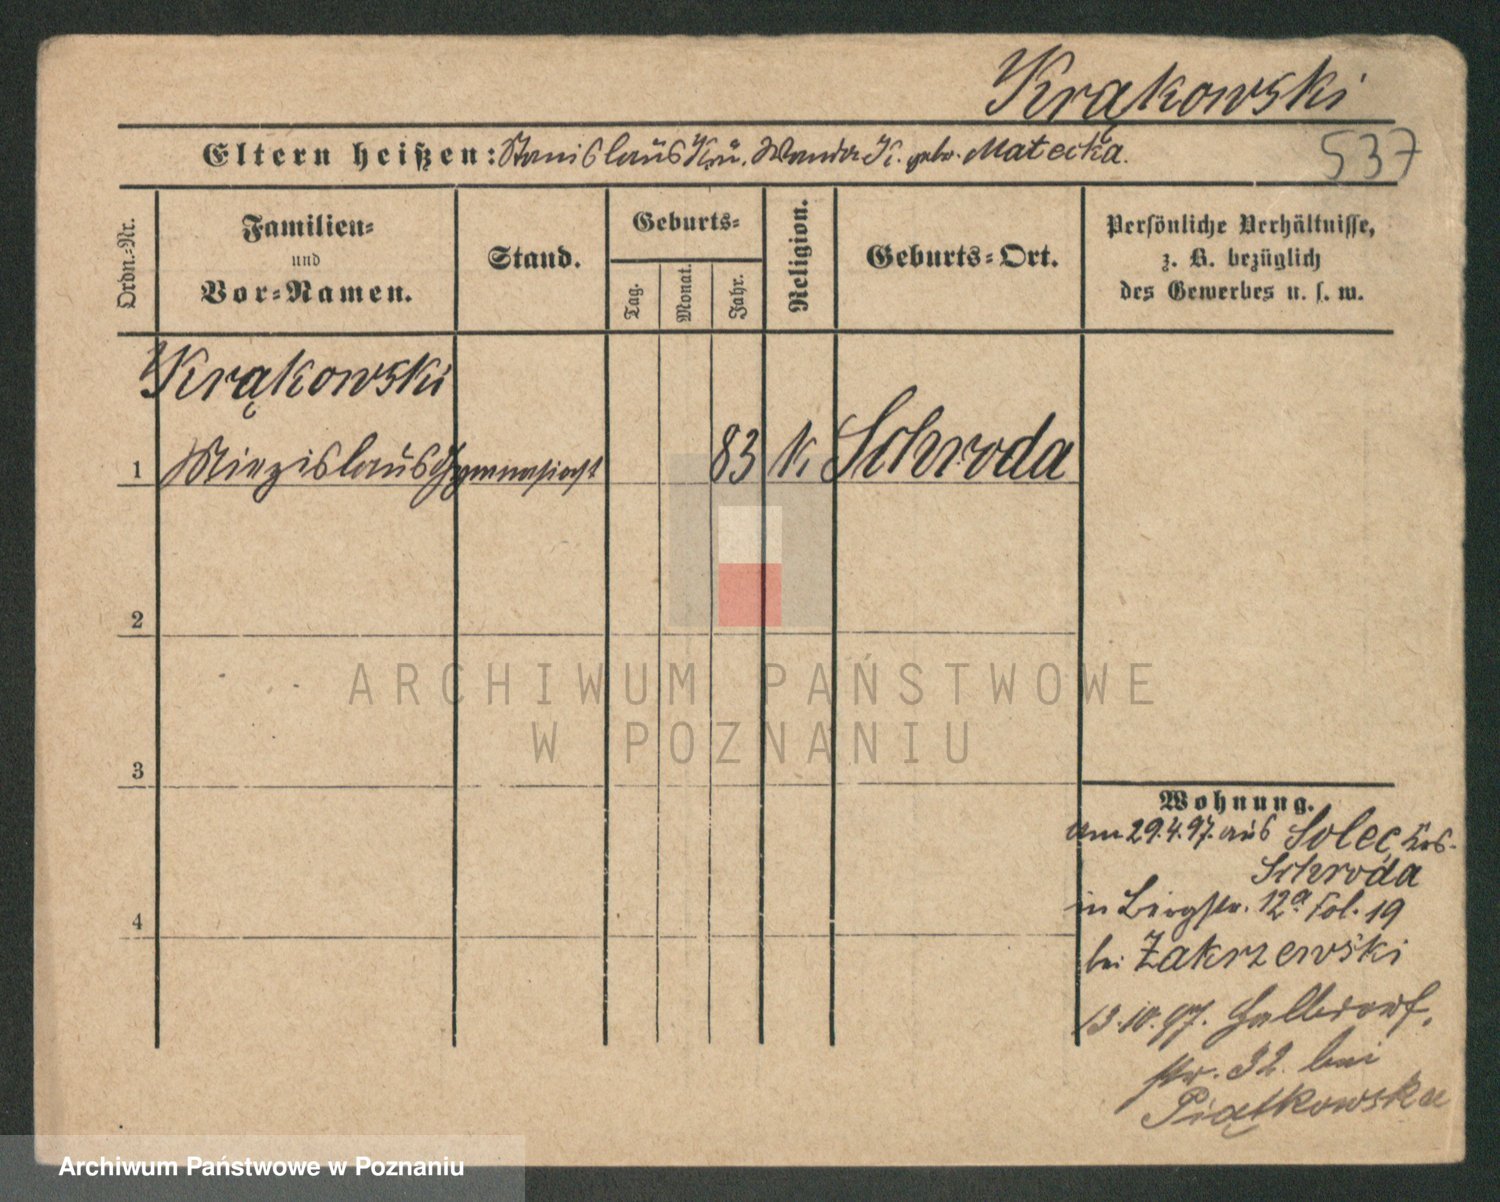 Krąkowski
537
Eltern heißen: Stanislaus K. u. Wanda K. geb. Matecka.
Ordn.-Nr.
Familien-
und
Vor-Namen.
Stand.
Geburts-
Tag.
Monat.
Jahr.
Religion.
Geburts-Ort.
Persönliche Verhältnisse,
z. B. bezüglich
des Gewerbes u. s. w.
Krąkowski
1 Miezislaus Gymnasiast 83 k Schroda
2
3
4
Wohnung.
am 29.4.97. aus Solec Krs.
Schroda
in Bergstr. 12a. Fol. 19
bei Zakrzewski
13.10.97. Halbdorf,
str. 32. bei
Piątkowska
ARCHIWUM PAŃSTWOWE
W POZNANIU
Archiwum Państwowe w Poznaniu